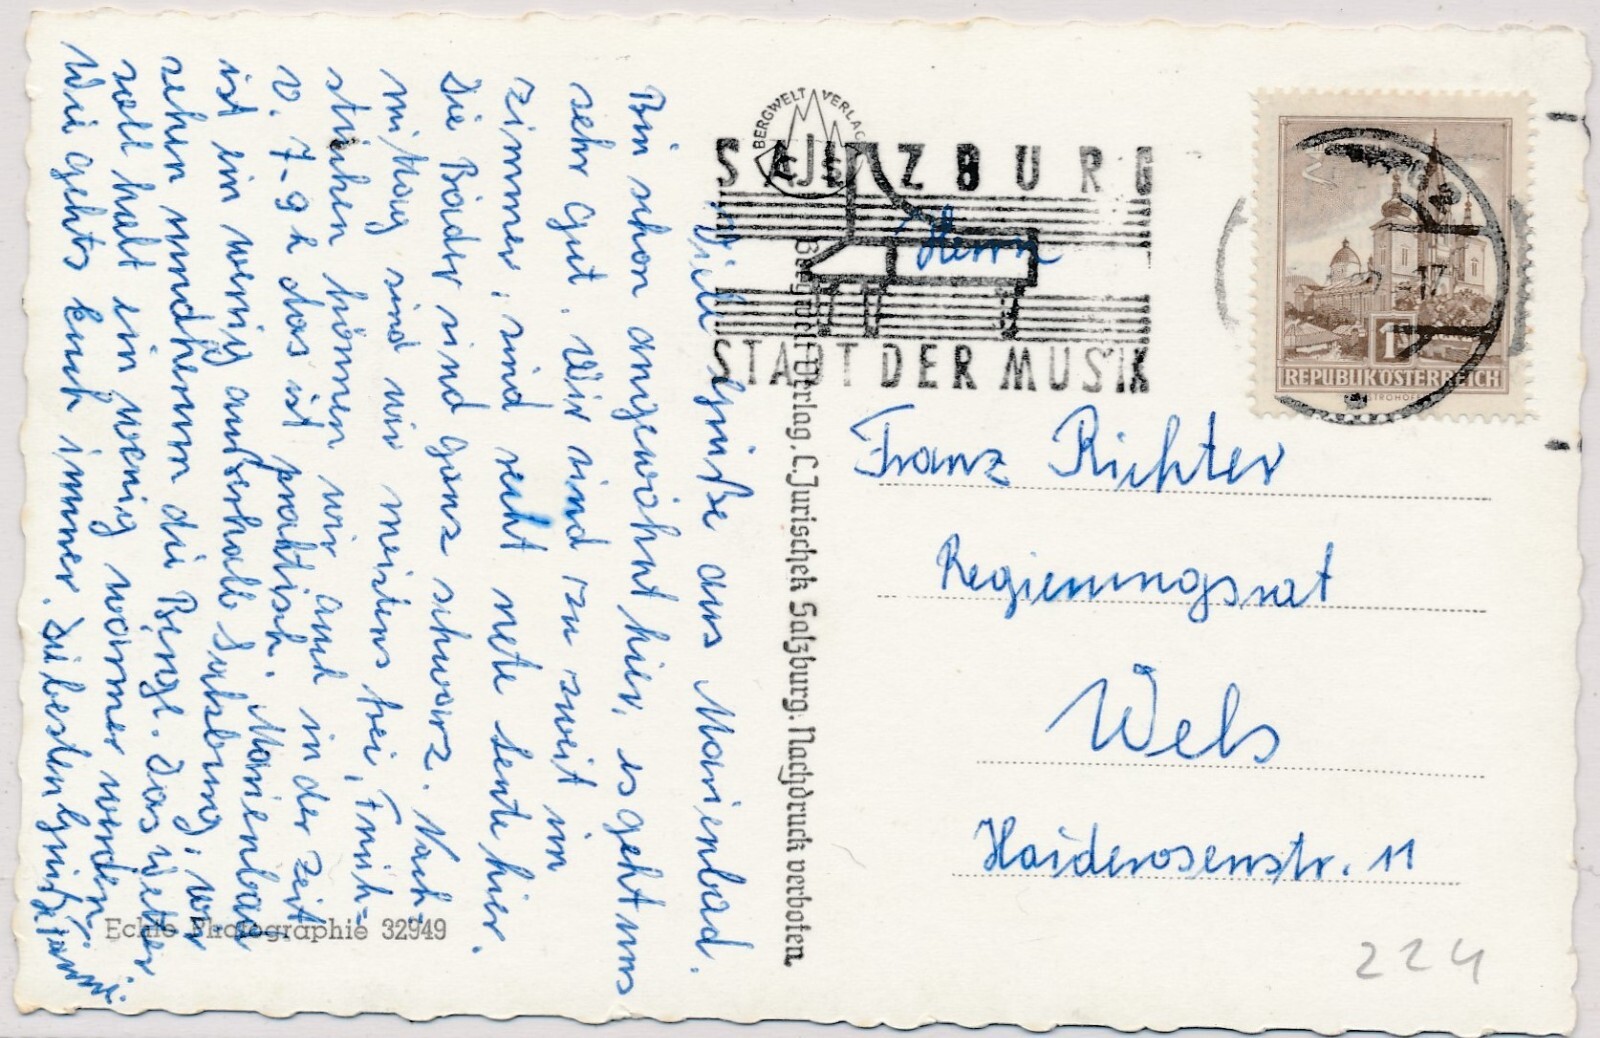 Viele Grüße aus Marienbad.
Bin schon angewöhnt hier, es geht uns
sehr gut. Wir sind zu zweit im
zimmer, sind recht nete Leute hier.
Die Bäder sind ganz schwarz. Nach-
mittag sind wir meistens frei, Früh-
stücken können wir auch in der Zeit
v. 7-9 h das ist praktisch. Marienbad
ist ein wenig außerhalb Salzburg, wir
sehen rundherum die Berge. Das Wetter
soll halt ein wenig warmer werden.
Wie gehts Euch immer. Die besten Grüße
BERGWELT VERLAG
CJS
SALZBURG
STADT DER MUSIK
REPUBLIK ÖSTERREICH
Herrn
Franz Richter
Regierungsrat
Wels
Haiderosenstr. 11
Bergwelt Verlag, C. Jurischek Salzburg. Nachdruck verboten
Echte Photographie 32949
224